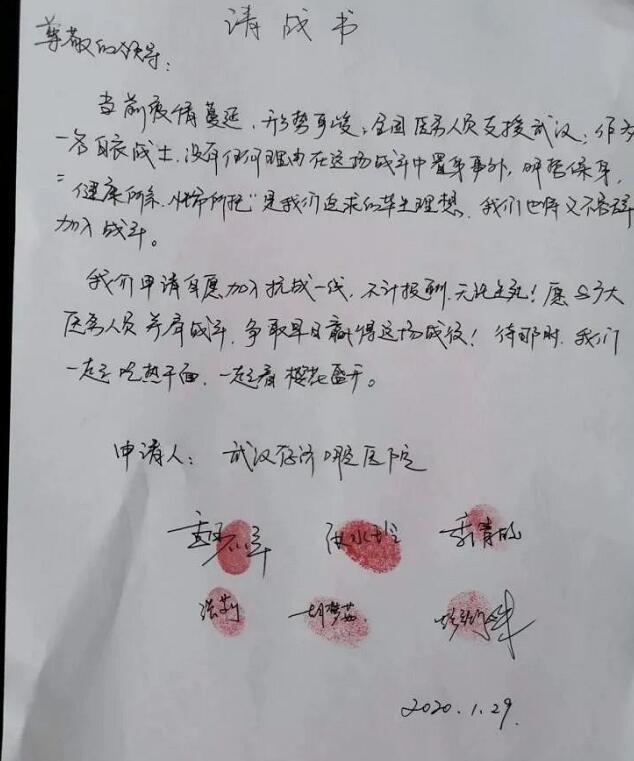 请战书
尊敬的领导：
当前疫情蔓延，形势严峻，全国医务人员支援武汉；作为
一名白衣战士，没有任何理由在这场战斗中置身事外，明哲保身，
"健康所系，性命所托"是我们追求的毕生理想，我们也将义不容辞
加入战斗。
我们申请自愿加入抗战一线，不计报酬，无论生死！愿与广大
医务人员并肩战斗，争取早日赢得这场战役！待那时，我们
一起吃热干面，一起看樱花盛开。
申请人：武汉存济口腔医院
张莉
胡梦茹
2020.1.29.